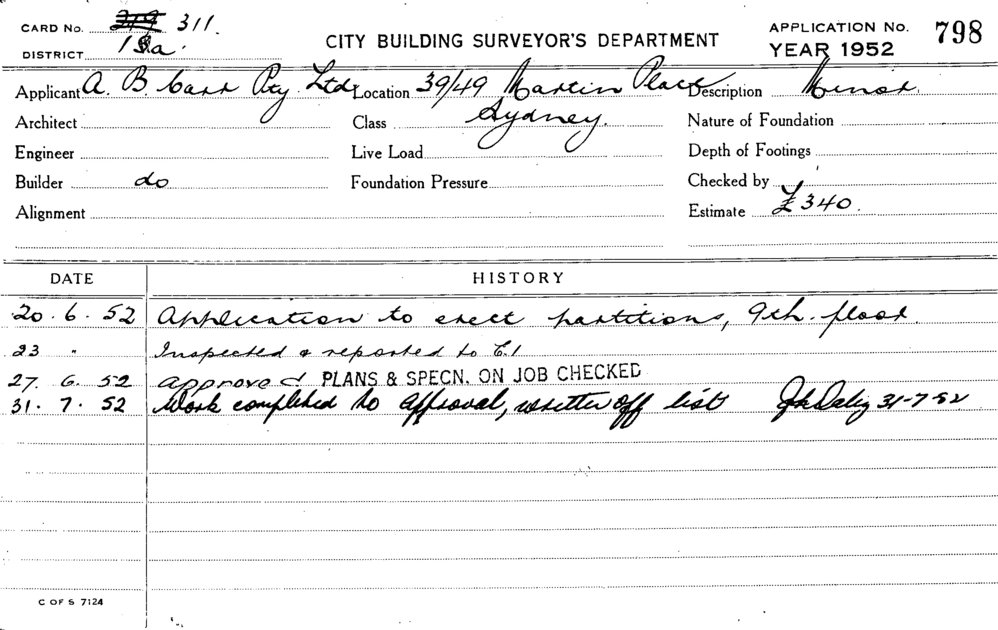 CARD No. 319 311.
DISTRICT
CITY BUILDING SURVEYOR'S DEPARTMENT
APPLICATION No. 798
YEAR 1952
Applicant A. B. Carr Pty Ltd Location 39/49 Martin Place Description Minor.
Architect Class Sydney. Nature of Foundation
Engineer Live Load Depth of Footings
Builder do Foundation Pressure Checked by
Alignment Estimate £340.
DATE HISTORY
20. 6. 52 Application to erect partitions, 9th. floor.
23 " Inspected & reported to E.1
27. 6. 52 approved PLANS & SPECN. ON JOB CHECKED
31. 7. 52 Work completed to approval, written off list 31-7-52
C OF S 7124